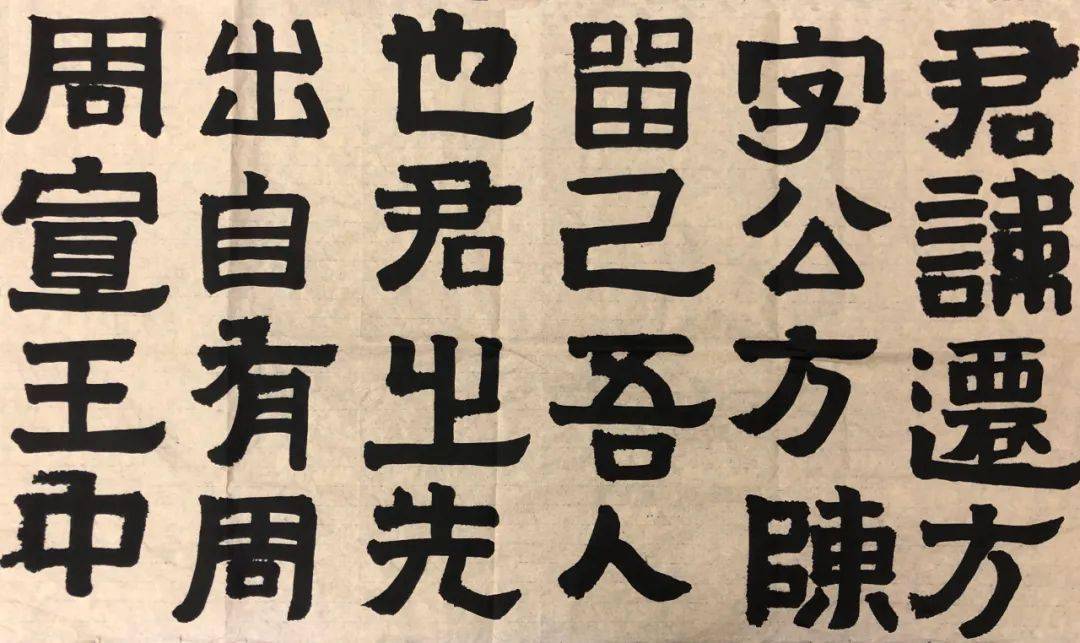 君諱遷方
字公方陳
留己吾人
也君之先
出自有周
周宣王中